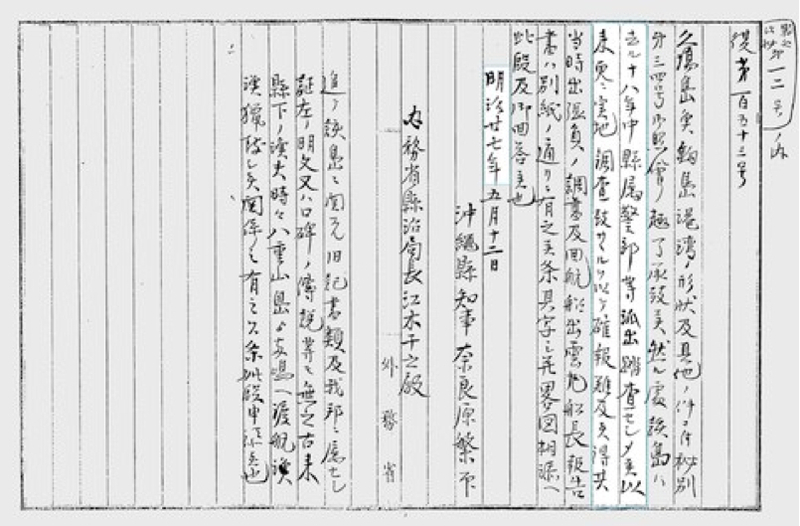 復第百五十三号
久場島魚釣島港湾ノ形状及其他ノ件ニ付秘別
第三四号御照会ノ趣了承致候然ル処該島ハ
去ル十八年中県属警部等派出踏査セシメ候以
来更ニ実地調査致サヾルヲ以テ確報難及候得共
当時出張員ノ調書及回航船出雲丸船長報告
書ハ別紙ノ通リニ有之候条其写ニ茺畧図相添ヘ
此段及御回答候也
明治廿七年五月十二日
沖縄縣知事奈良原繁
内務省縣治局長江木千之殿
外務省
追テ該島ニ関スル旧記書類及我邦ニ属セシ
証左ノ明文又ハ口碑ノ傳説等モ無之古来
縣下ノ漁夫時々八重山島ヨリ両島ヘ渡航漁
猟致シ候関係ノミ有之候条此段申添候也